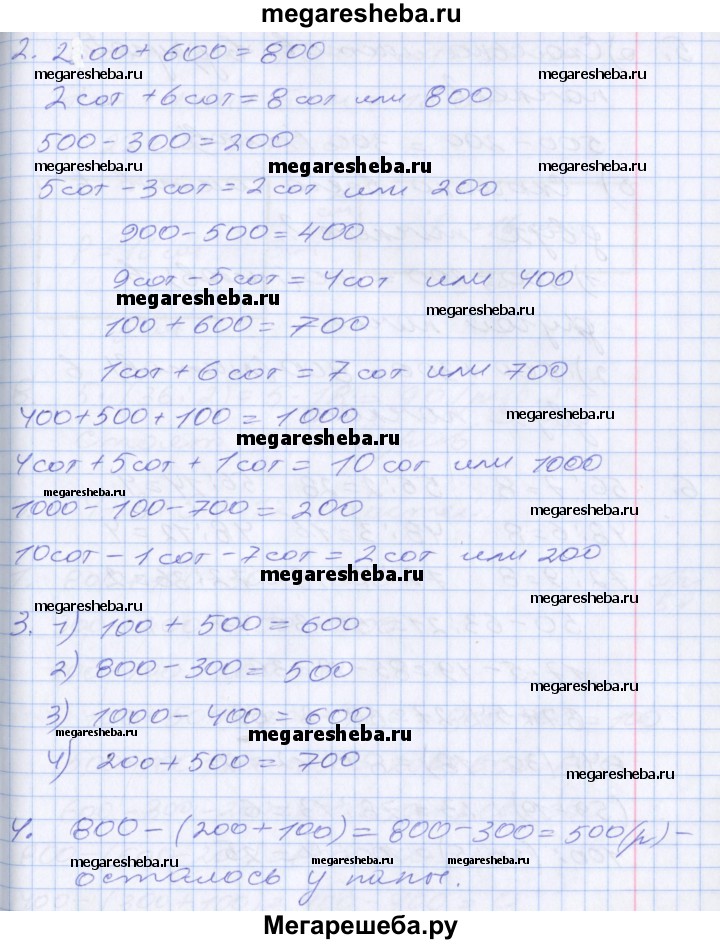 megaresheba.ru
2. 200 + 600 = 800
megaresheba.ru megaresheba.ru
2 сот + 6 сот = 8 сот или 800
500 - 300 = 200
megaresheba.ru megaresheba.ru megaresheba.ru
5 сот - 3 сот = 2 сот или 200
900 - 500 = 400
9 сот - 5 сот = 4 сот или 400
megaresheba.ru megaresheba.ru
100 + 600 = 700
1 сот + 6 сот = 7 сот или 700
400 + 500 + 100 = 1000 megaresheba.ru
megaresheba.ru
4 сот + 5 сот + 1 сот = 10 сот или 1000
megaresheba.ru
1000 - 100 - 700 = 200 megaresheba.ru
10 сот - 1 сот - 7 сот = 2 сот или 200
megaresheba.ru
megaresheba.ru megaresheba.ru
3. 1) 100 + 500 = 600
2) 800 - 300 = 500
megaresheba.ru
3) 1000 - 400 = 600
megaresheba.ru megaresheba.ru
4) 200 + 500 = 700
megaresheba.ru
4. 800 - (200 + 100) = 800 - 300 = 500 (р) -
megaresheba.ru megaresheba.ru megaresheba.ru
осталось у папы.
Мегарешеба.ру